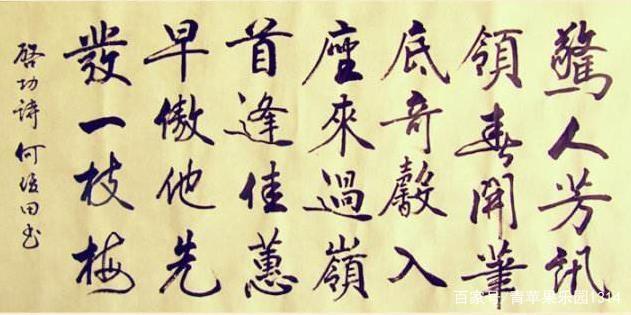 驚人芳訊
領春開筆
底奇馨入
座來過嶺
首逢佳蕙
早傲他先
發一枝梅
啓功詩 何田书
百家号/青苹果乐园1314